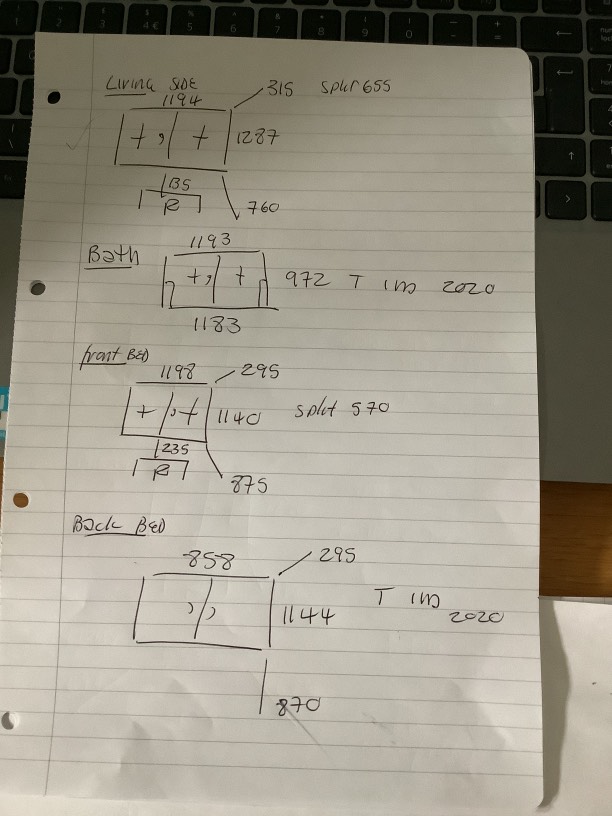 Living SIDE
1194
315 split 655
+ , + 1287
135
R
760
Bath
1193
+, + 972 T IM 2020
1183
front BED
1198 295
+ ,+ 1140 split 570
235
R
875
Back BED
858 295
, , 1144 T IM 2020
870